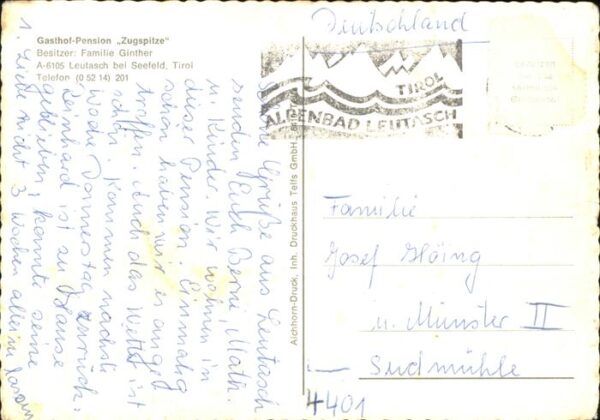 Gasthof-Pension „Zugspitze“
Besitzer: Familie Ginther
A-6105 Leutasch bei Seefeld, Tirol
Telefon (0 52 14) 201
Deutschland
TIROL
ALPENBAD LEUTASCH
Grüße aus Leutasch
senden Euch Berni, Math.
u. Kinder. Wir wohnen in
dieser Pension. Einmalig
schön haben wir es anget
troffen. Auch das Wetter ist
schön. Kommen nächste
Woche Donnerstag zurück.
Reinhard ist zu Hause
geblieben, konnte seine
nicht 3 Wochen allein lassen
Aichhorn-Druck, Inh. Druckhaus Telfs GmH.
Familie
Josef Höing
u. Münster II
Sudmühle
4401